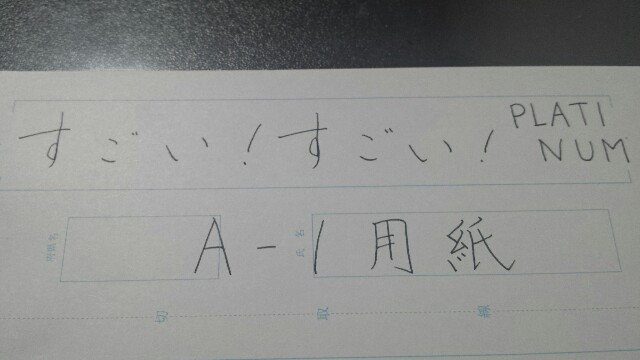 すごい!すごい! PLATI
NUM
A-1用紙
氏名
切 取 線